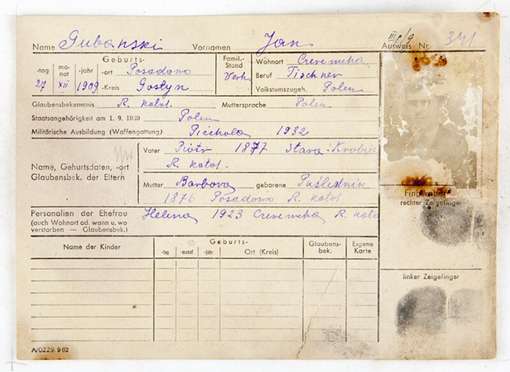 Name Gubański Vornamen Jan Ausweis Nr. 341
Geburts- Famil.-Stand Wohnort Czeremcha
-tag mo-nat -jahr -ort Posadowo Beruf Tischner
27 XII 1909 -Kreis Gostyn Verh. Volkstumszugeh. Polen
Glaubensbekenntnis R. katol. Muttersprache Polen
Staatsangehörigkeit am 1. 9. 1939 Polen
Militärische Ausbildung (Waffengattung) Piechota 1932
Name, Geburtsdaten, -ort
Glaubensbek. der Eltern
Vater Piotr 1877 Stara-Krobia
R. katol.
Mutter Barbara geborene
1876 Posadowo R. katol
Personalien der Ehefrau Helena 1923 Czeremcha R. kato
(auch Wohnort od. wann u. wo
verstorben — Glaubensbek.)
Fingerabdruck
rechter Zeigefinger
Name der Kinder Geburts- Glaubens-bek. Eigene Karte
-tag -monat -jahr Ort (Kreis)
linker Zeigefinger
A/0229 9 62